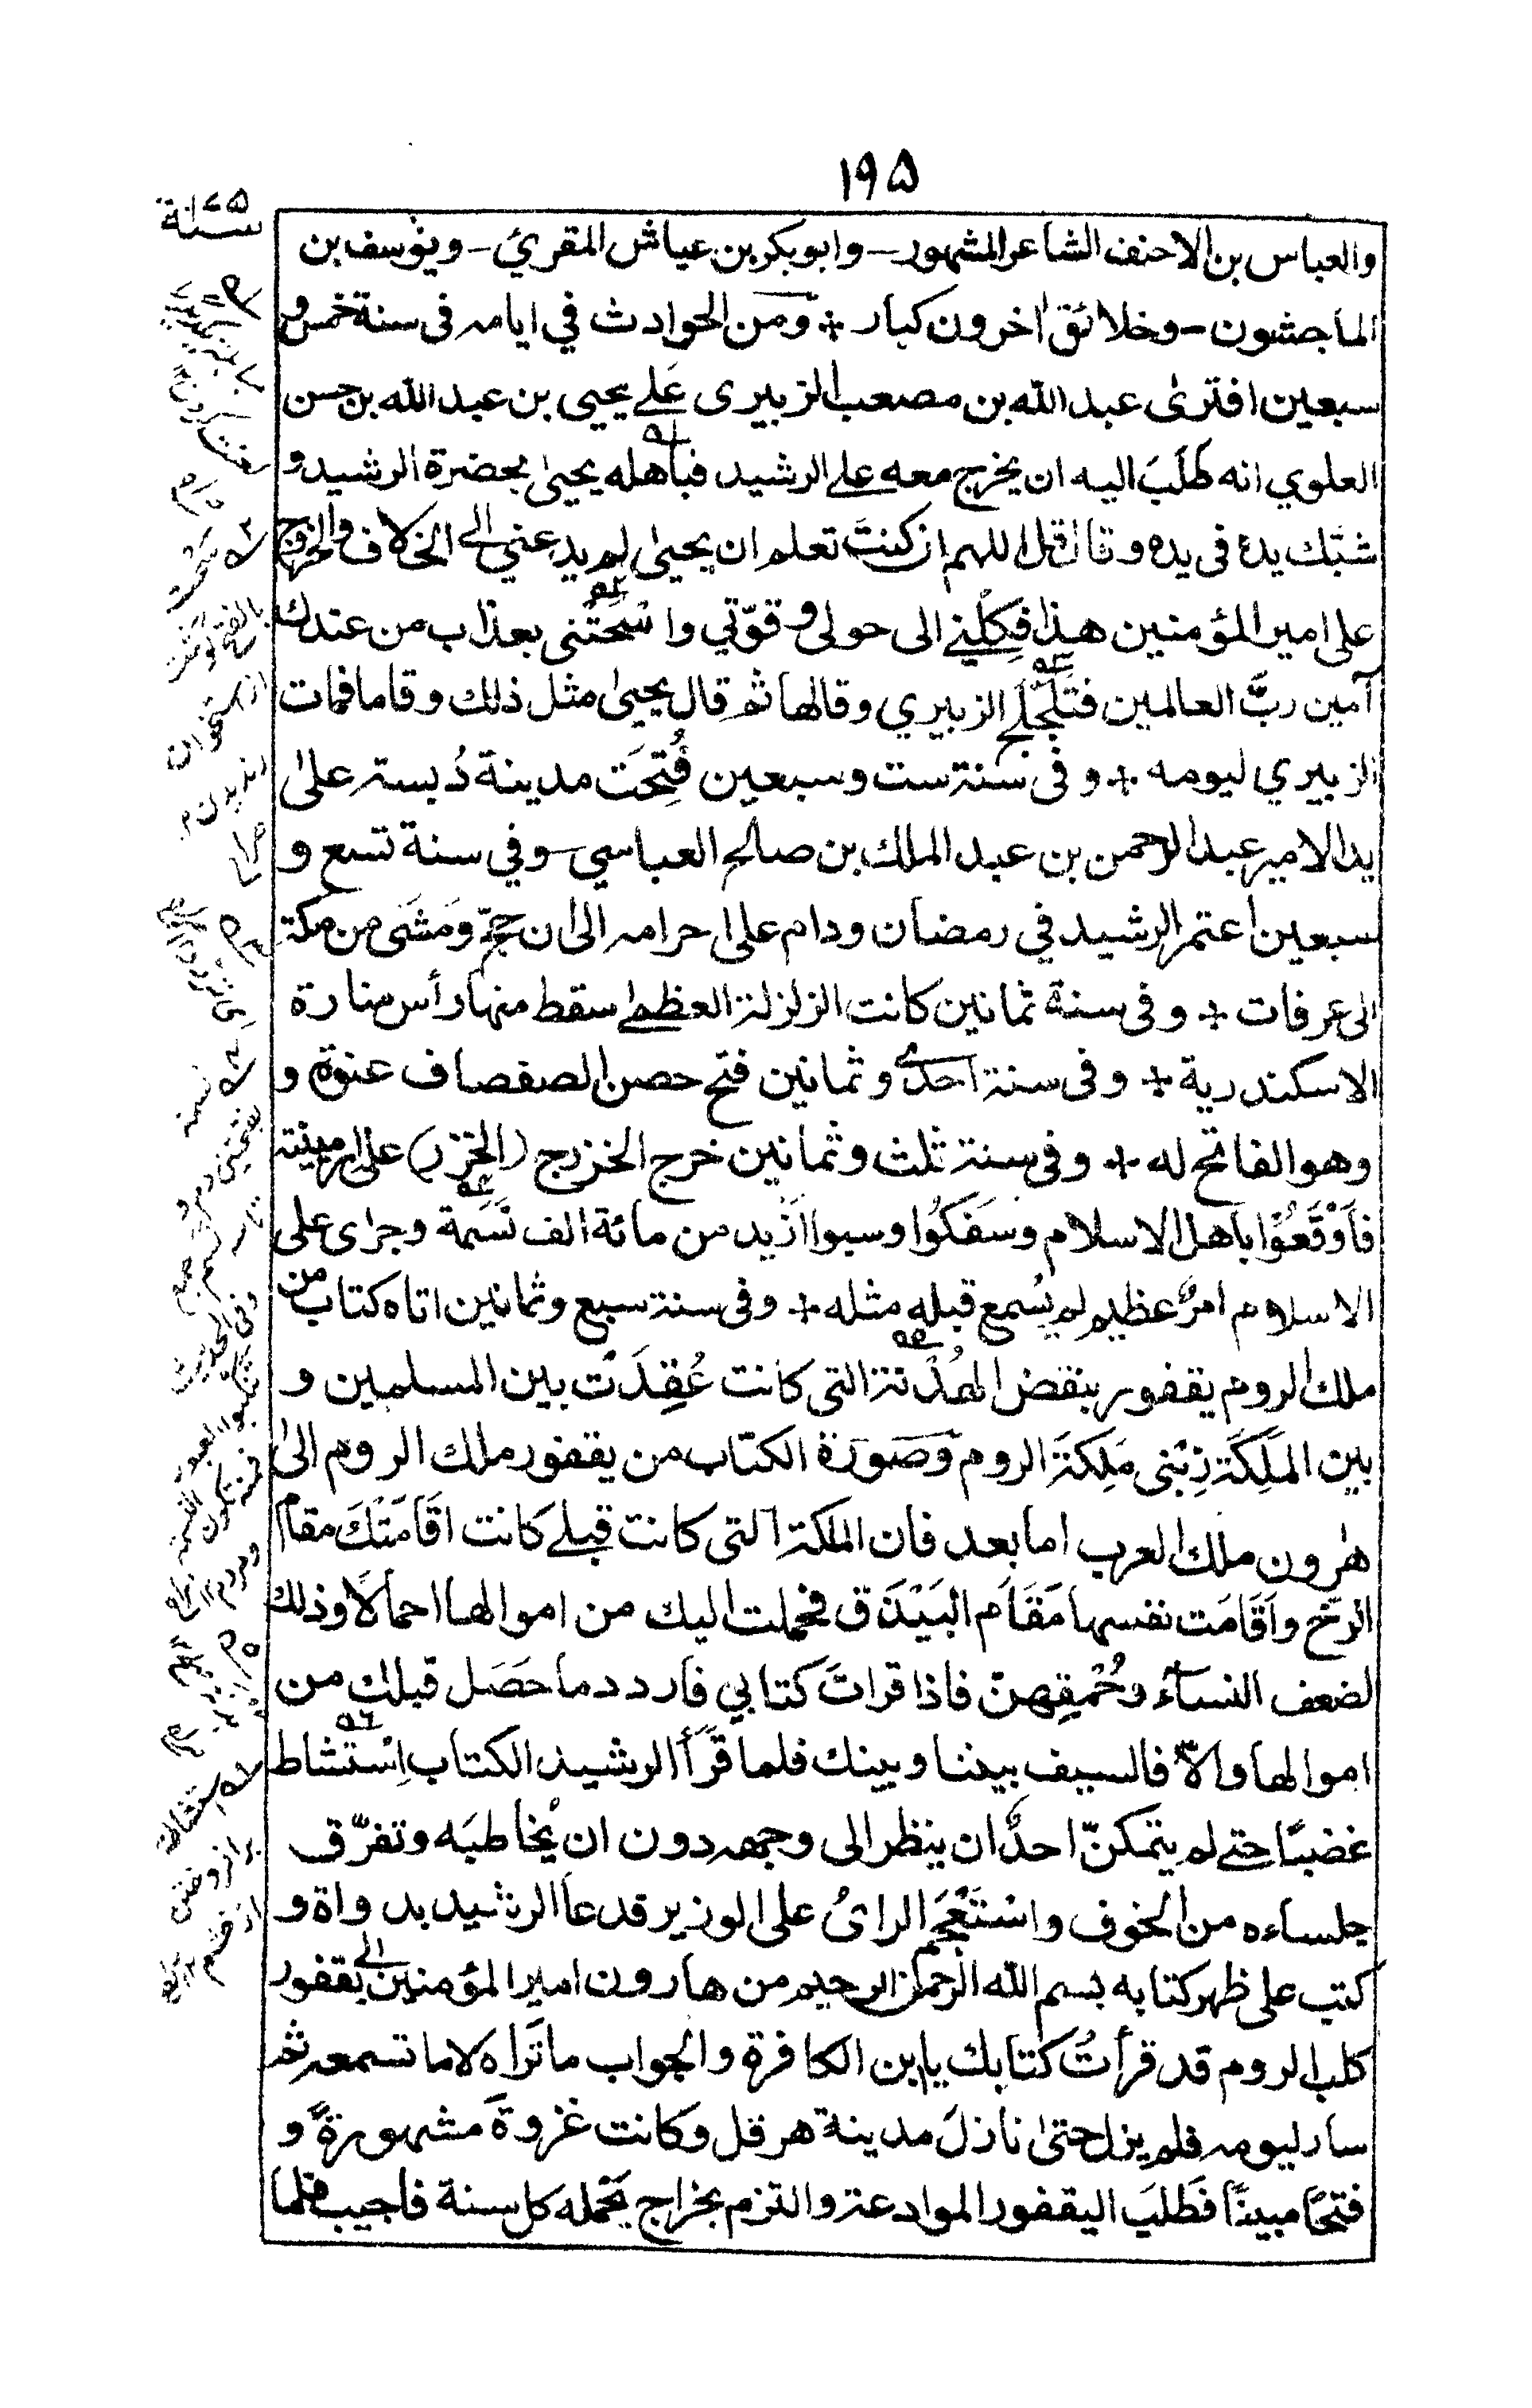 ١٩٥
سنة ١٧٥
والعباس بن الاحنف الشاعر المشهور - وابوبكر بن عياش المقرئ - ويوسف بن
الماجشون - وخلائق اخرون كبار + ومن الحوادث في ايامه فى سنة خمس و
سبعين افترى عبد الله بن مصعب الزبيرى عَلے يحيى بن عبد الله بن حسن
العلوي انه طَلَبَ اليه ان يخرج معه علے الرشيد فباهله يحيىٰ بحضرة الرشيد و
شبّك يدهٗ فى يده وقال قل اللهم ان كنتَ تعلم ان يحيىٰ لم يدعني الى الخلاف والخروج
على امير المؤمنين هذا فكِلْنِے الى حولى وقوّتي واسْحَتْنى بعذاب من عندك
آمين ربَّ العالمين فتَلَجْلَجَ الزبيري وقالها ثم قال يحيىٰ مثل ذلك وقاما فمات
الزبيري ليومه + و فى سنة ست وسبعين فُتِحَت مدينة دُبسة علىٰ
يد الامير عبد الرحمن بن عبد الملك بن صالح العباسي - وفي سنة تسع و
سبعين اعتمر الرشيد في رمضان ودام على احرامه الى ان حجّ ومَشَى من مكة
الى عرفات + و فى سنة ثمانين كانت الزلزلة العظمے سقط منها رأس منارة
الاسكندرية + و فى سنة احدى وثمانين فتح حصن الصفصاف عنوة و
وهو الفاتح له + و فى سنة ثلث وثمانين خرج الخزرج (الخزر) على ارمينة
فاَوْقَعُوْا باهل الاسلام وسَفَكُوا وسبوا ازيد من مائة الف نَسَمة وجرى على
الاسلام امرٌ عظيم لم يُسمع قبله مثله + و فى سنة سبع وثمانين اتاه كتاب من
ملك الروم يقفور بنقض الهُدْنة التى كانت عُقِدَت بين المسلمين و
بين المَلِكَة زِبْنى مَلِكَة الروم وصورة الكتاب من يقفور ملك الروم الىٰ
هٰرون ملك العرب اما بعد فان الملكة التى كانت قبلے كانت اقَامَتْكَ مقام
الرخّ واَقَامَت نفسها مَقَام البَيْذَق فحملت اليك من اموالها احمالًا وذلك
لضعف النساء وحُمْقِهنّ فاذا قرات كتابي فاردد ما حَصَل قبلك من
اموالها والّا فالسيف بيننا وبينك فلما قَرَأَ الرشيد الكتاب اِسْتشاط
غضبًا حتے لم يتمكنّ احدٌ ان ينظر الى وجهه دون ان يُخاطبَه وتفرّق
جلساءه من الخوف واسْتَعْجَمَ الراىُ على الوزير فدعا الرشيد بدواة و
كتب على ظهر كتابه بسم الله الرحمٰن الرحيم من هارون امير المؤمنين الى يقفور
كلب الروم قد قرأتُ كتابك يا بن الكافرة والجواب ما تَراه لا ما تسمعه ثم
سار ليومه فلم يزل حتىٰ نازل مدينة هرقل وكانت غزوةً مشهورةً و
فتحًا مبينًا فطَلبَ اليقفور الموادعة والتزم بخراج يَحمله كل سنة فاجيب فلما